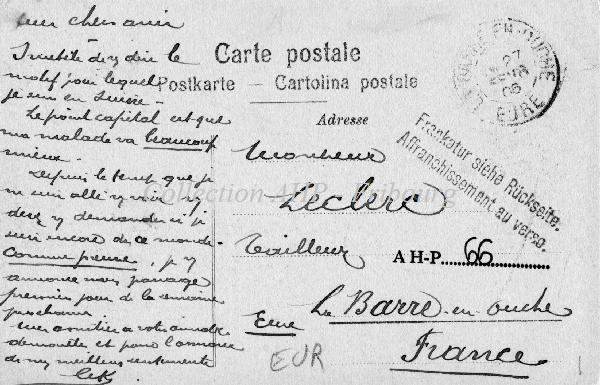 mon cher ami
Inutile de vous dire le
motif pour lequel
je suis en Suisse -
Le point capital est que
ma malade va beaucoup
mieux.
Depuis le temps que je
m'en
demander si je
suis encore de ce monde.
Comme preuve, je
annonce mon passage
premier jour de la semaine
prochaine
mes amitiés à votre aimable
et pour
mes meilleurs sentiments
Carte postale
Postkarte - Cartolina postale
Adresse
Monsieur
Leclerc
Tailleur
La Barre-en-Ouche
Eure
France
EUR
A H-P 66
Frankatur siehe Rückseite.
Affranchissement au verso.
EN-OUCHE
27
EURE
Collection AHP - Fribourg